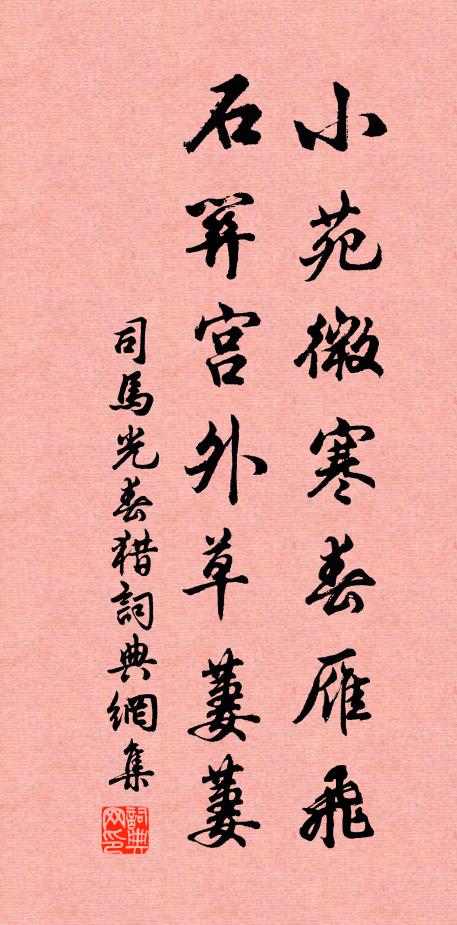 小苑微寒春雁飛
石關宮外草萋萋
司馬光春猎詞典網集
詞典网印